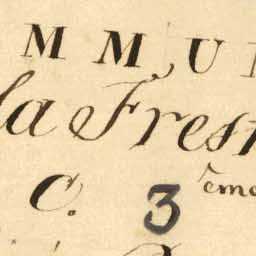 MMU
la Fres
C. 3ème